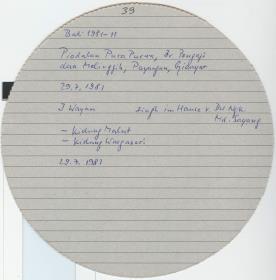 39
Bali 1981-11
Piodalan Pura Purun, Br. Pengaji
dan Melinggih, Payangan, Gianyar
29.7.1981
I Wayan singt im Hause v. Dw Nyk
Md. Sayang
- Kidung Malat
- Kidung Wargasari
29.7.1981